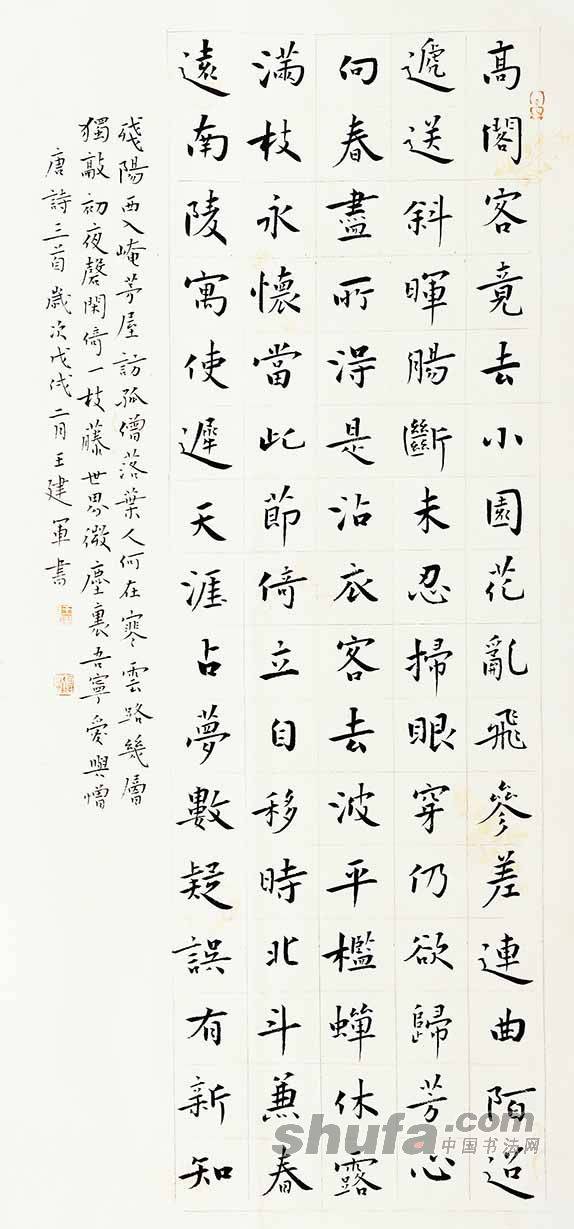 高閣客竟去小園花亂飛參差連曲陌迢
遞送斜暉腸斷未忍掃眼穿仍欲歸芳心
向春盡所得是沾衣客去波平檻蟬休露
滿枝永懷當此節倚立自移時北斗兼春
遠南陵寓使遲天涯占夢數疑誤有新知
殘陽西入崦茅屋訪孤僧落葉人何在寒雲路幾層
獨敲初夜磬閑倚一枝藤世界微塵裏吾寧愛與憎
唐詩三首歲次戊戌二月王建軍書
shufa.com
中国书法网